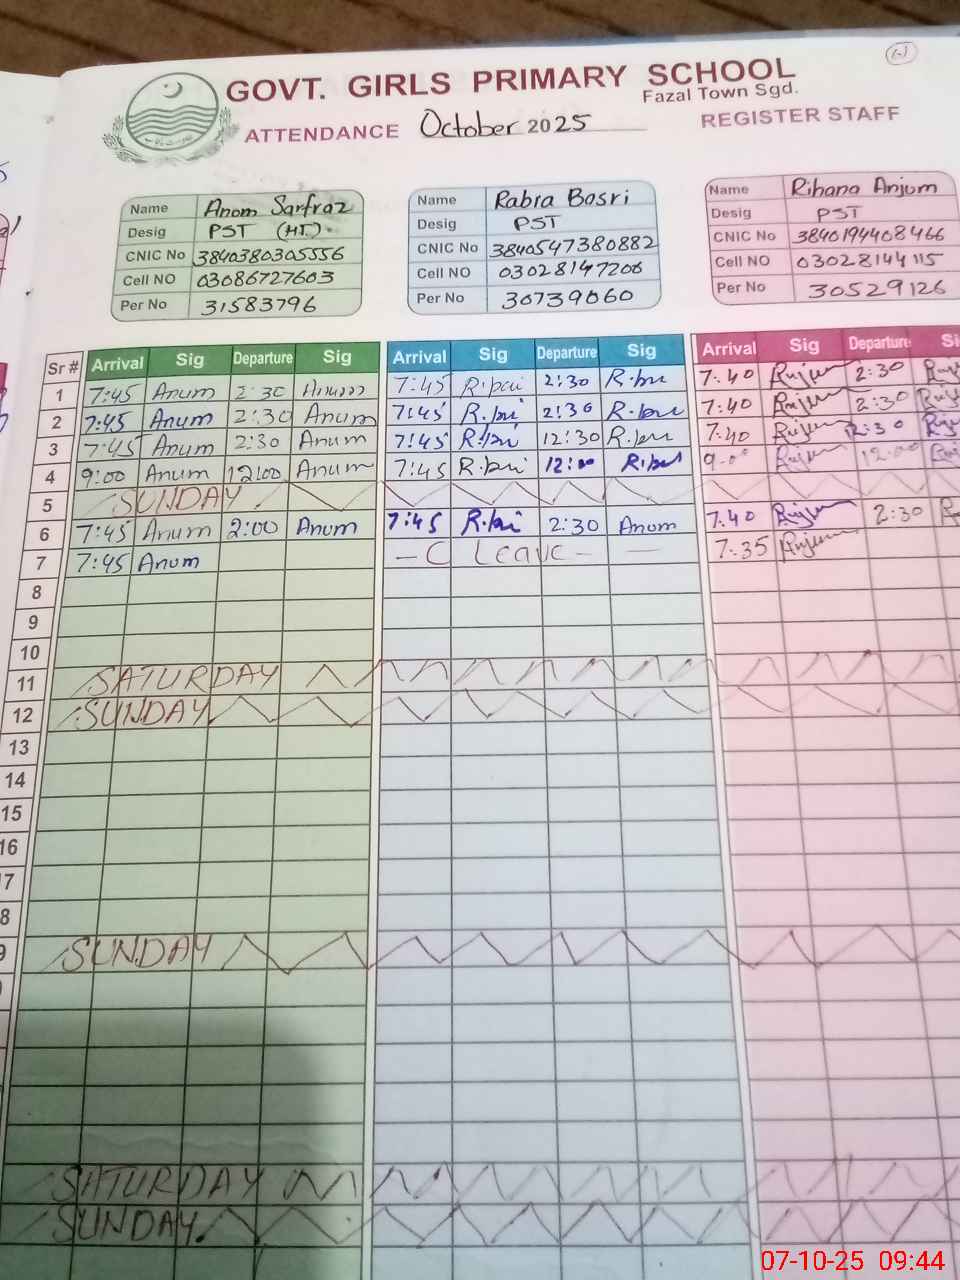 GOVT. GIRLS PRIMARY SCHOOL
Fazal Town Sgd.
ATTENDANCE October 2025 REGISTER STAFF
Name Anom Sarfraz
Desig PST (HT).
CNIC No 3840380305556
Cell NO 03086727603
Per No 31583796
Name Rabra Basri
Desig PST
CNIC No 3840547380882
Cell NO 03028147206
Per No 30739060
Name Rihana Anjum
Desig PST
CNIC No 3840194408466
Cell NO 03028144115
Per No 30529126
Sr # Arrival Sig Departure Sig Arrival Sig Departure Sig Arrival Sig Departure Si
1 7:45 Anum 2:30 Anum 7:45 R.bai 2:30 R.bai 7:40 Anjum 2:30
2 7:45 Anum 2:30 Anum 7:45 R.bai 2:30 R.bai 7:40 Anjum 2:30
3 7:45 Anum 2:30 Anum 7:45 R.bai 12:30 R.bai 7:40 Anjum 2:30
4 9:00 Anum 12:00 Anum 7:45 R.bai 12:00 R.bai 9:00 Anjum 12:00
5 SUNDAY
6 7:45 Anum 2:00 Anum 7:45 R.bai 2:30 Anum 7:40 Anjum 2:30
7 7:45 Anum - C Leave - — 7:35 Anjum
8
9
10
11 SATURDAY
12 SUNDAY
13
14
15
16
7
8
9 SUNDAY
SATURDAY
SUNDAY
07-10-25 09:44